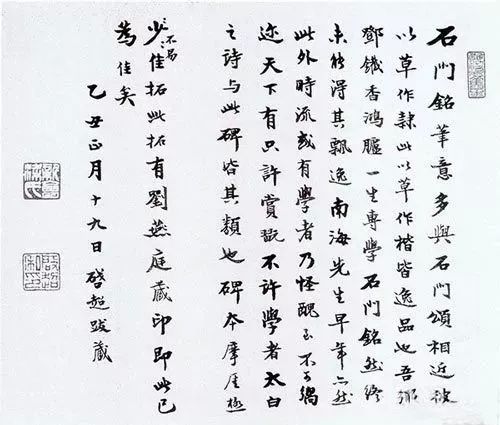 石門銘筆意多與石門頌相近彼
以草作隸此以草作楷皆逸品也吾鄉
鄧鐵香鴻臚一生專學石門銘然終
未能得其飄逸南海先生早年亦然
此外時流或有學者乃怪醜至不可嚮
迩天下有只許賞翫不許學者太白
之詩與此碑皆其類也碑本摩厓極
不易
少佳拓此拓有劉燕庭藏印即此已
為佳矣
乙丑正月十九日啓超跋藏